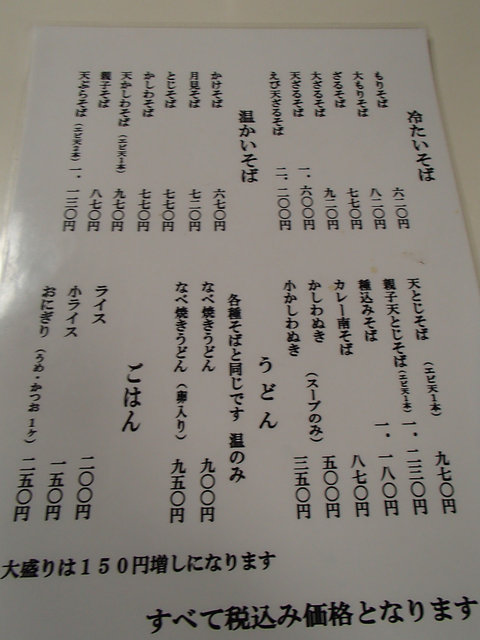 冷たいそば
もりそば 六二〇円
大もりそば 八二〇円
ざるそば 七七〇円
大ざるそば 九二〇円
天ざるそば 一.六〇〇円
えび天ざるそば 二.二〇〇円
温かいそば
かけそば 六七〇円
月見そば 七二〇円
とじそば 七七〇円
かしわそば 七七〇円
天かしわそば(エビ天1本) 九七〇円
親子そば 八七〇円
天ぷらそば(エビ天2本) 一.一三〇円
天とじそば (エビ天1本) 九七〇円
親子天とじそば(エビ天1本) 一.二三〇円
種込みそば 一.一八〇円
カレー南そば 八七〇円
かしわぬき (スープのみ) 五〇〇円
小かしわぬき 三五〇円
うどん
各種そばと同じです 温のみ
なべ焼きうどん 九〇〇円
なべ焼きうどん (卵入り) 九五〇円
ごはん
ライス 二〇〇円
小ライス 一五〇円
おにぎり (うめ・かつお1ケ) 二五〇円
大盛りは150円増しになります
すべて税込み価格となります